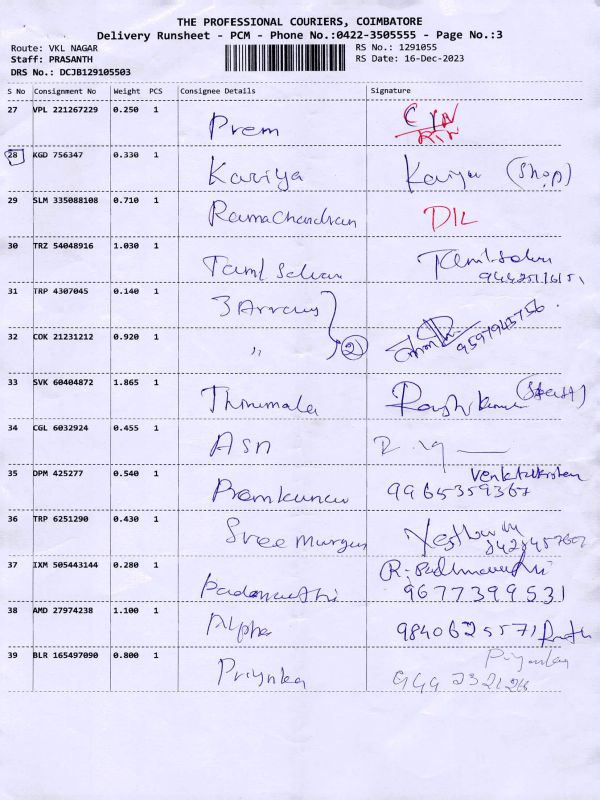 THE PROFESSIONAL COURIERS, COIMBATORE
Delivery Runsheet - PCM - Phone No.:0422-3505555 - Page No.:3
Route: VKL NAGAR
RS No.: 1291055
Staff: PRASANTH
RS Date: 16-Dec-2023
DRS No.: DCJB129105503
S No Consignment No Weight PCS Consignee Details Signature
27 VPL 221267229 0.250 1 Prem
28 KGD 756347 0.330 1 Kariya Kariya (Shop)
29 SLM 335088108 0.710 1 Ramachandran DIL
30 TRZ 54048916 1.030 1 Tamil Selvan Tamilselvan
31 TRP 4307045 0.140 1 3 Arrows
32 COK 21231212 0.920 1 〃 2 9597945756
33 SVK 60404872 1.865 1 Thirumala (Staff)
34 CGL 6032924 0.455 1 Asn
35 DPM 425277 0.540 1 9965359367
36 TRP 6251290 0.430 1 Sree Murugan
37 IXM 505443144 0.280 1 R. Padmavathi
9677399531
38 AMD 27974238 1.100 1 Alpha 9840625571
39 BLR 165497090 0.800 1 Priynka Priyanka